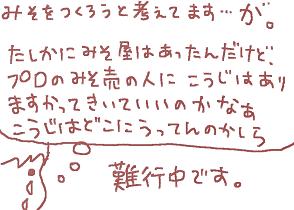 みそをつくろうと考えてます…が。
たしかにみそ屋はあったんだけど、
プロのみそ売の人に こうじはあり
ますかってきいていいのかなぁ
こうじはどこにうってんのかしら
難行中です。